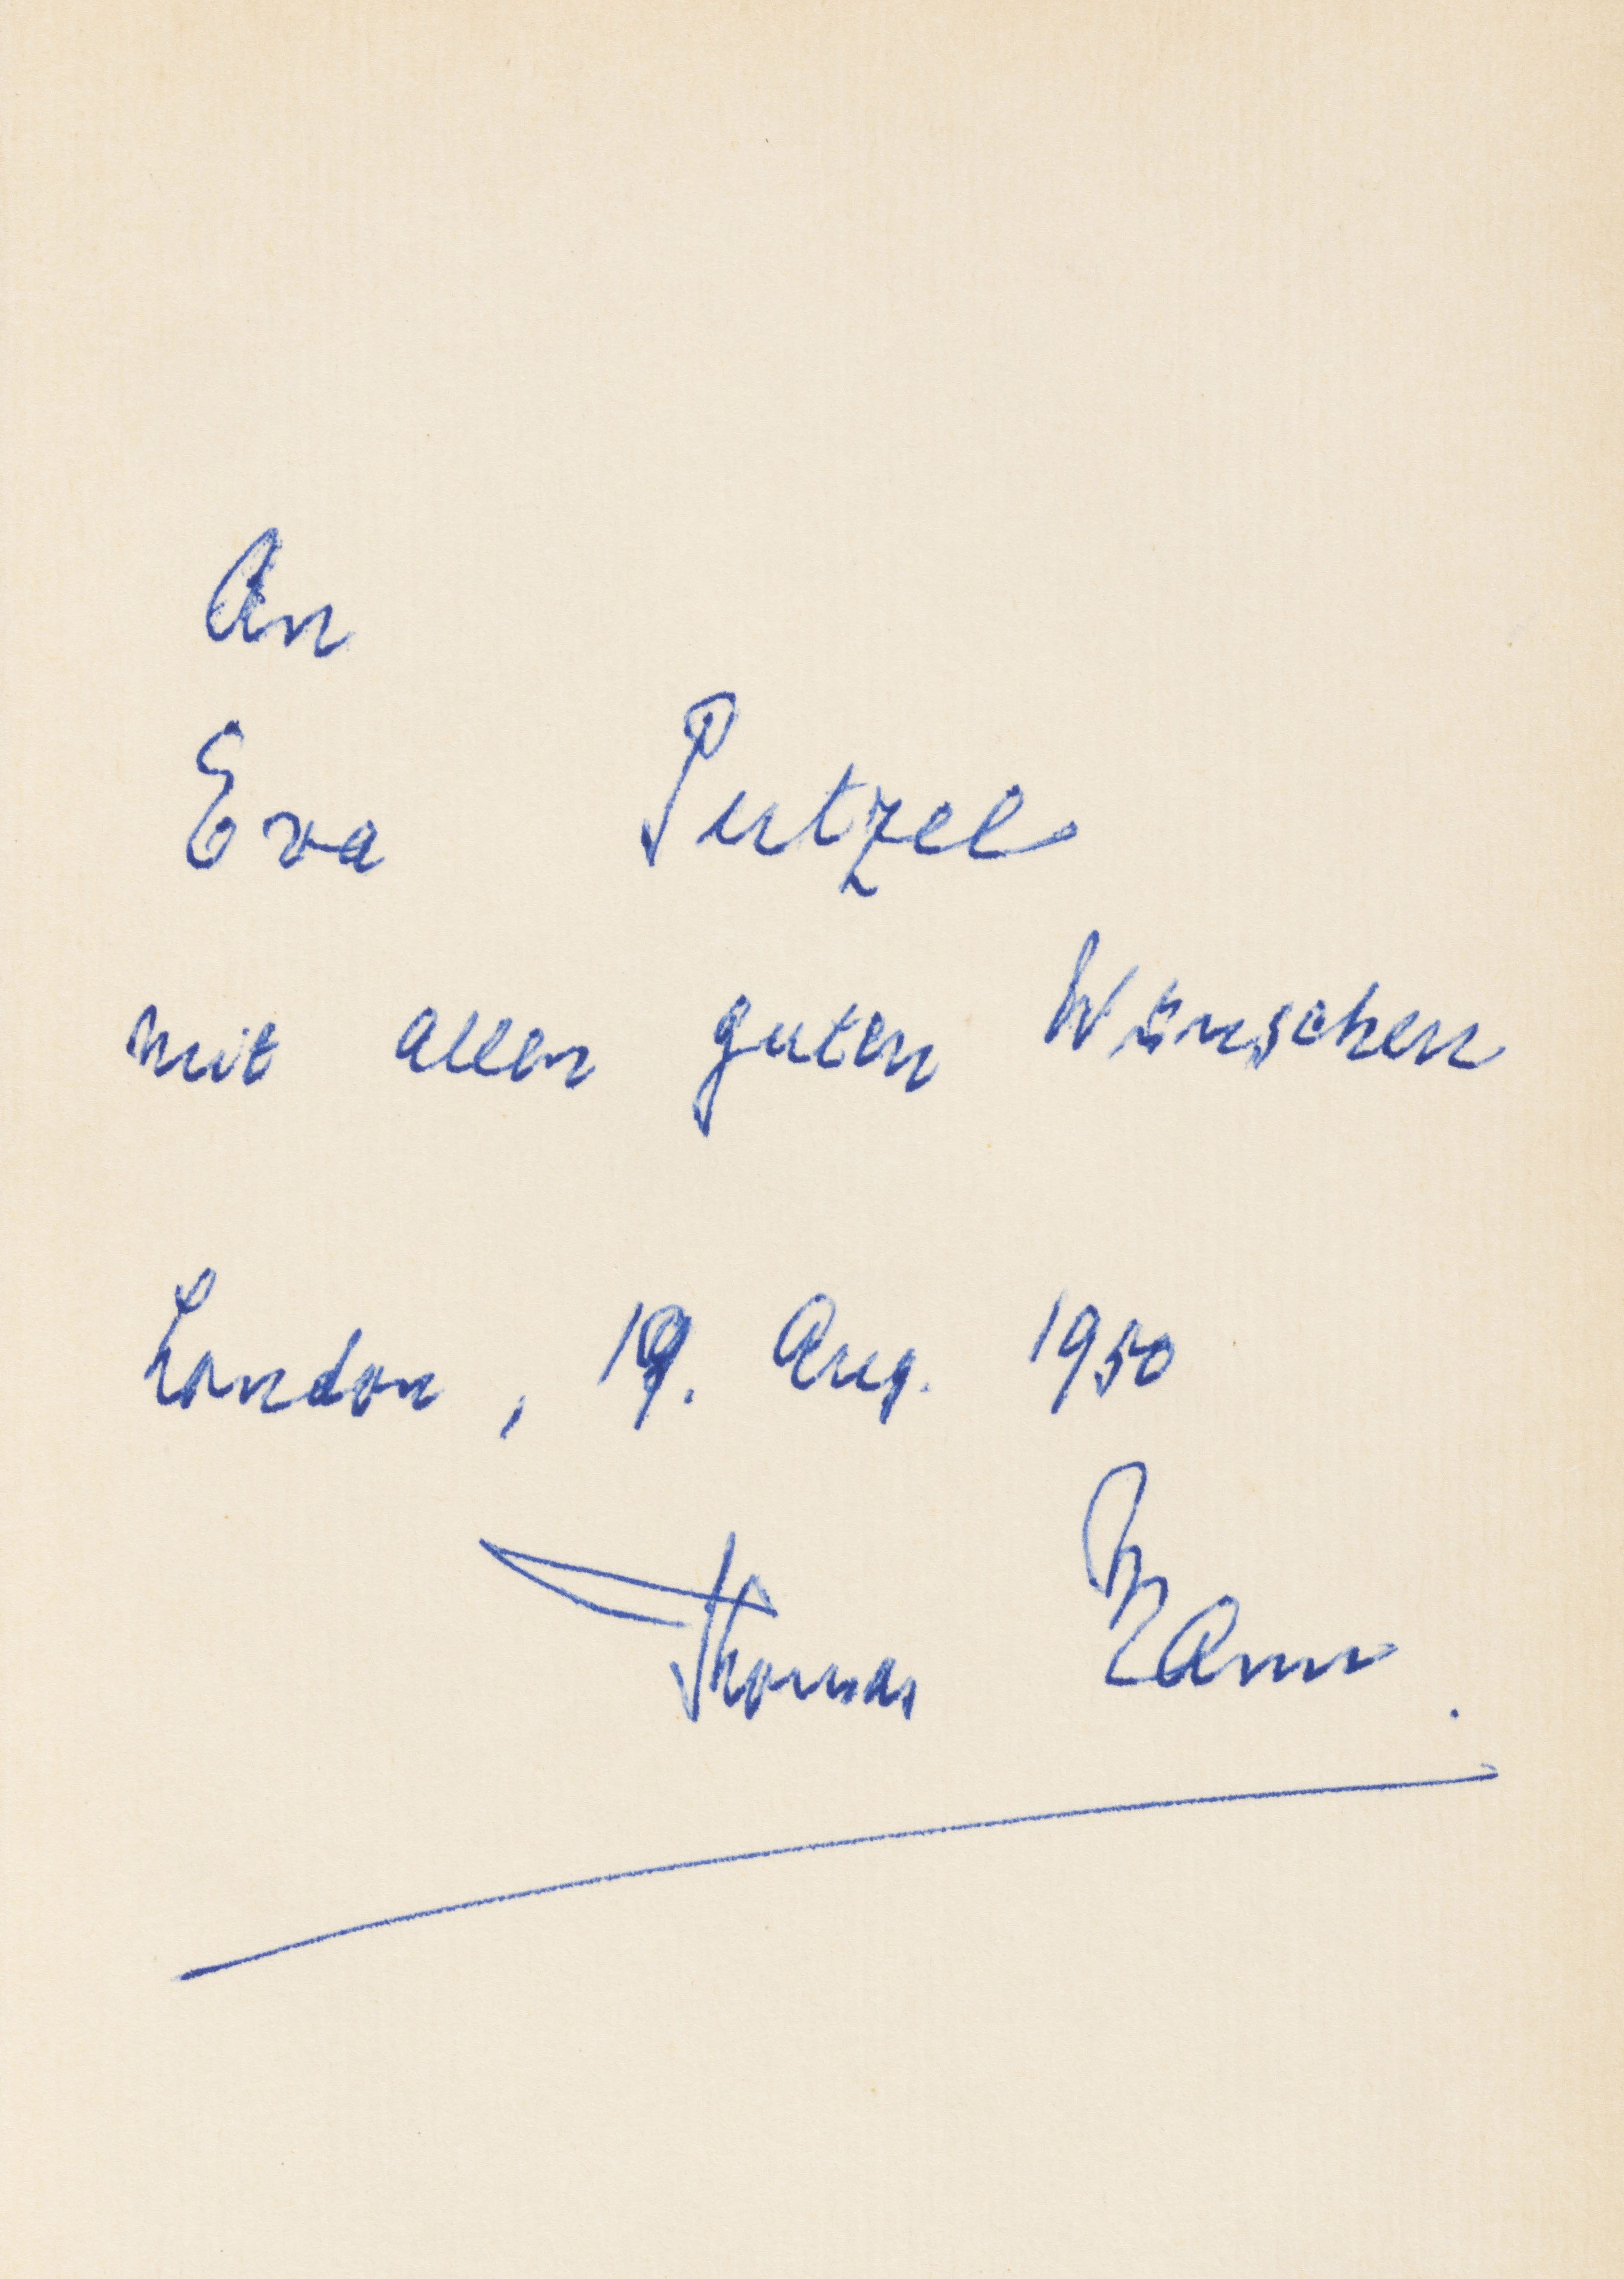 An
Eva Putzel
mit allen guten Wünschen
London, 19. Aug. 1950
Thomas Mann.